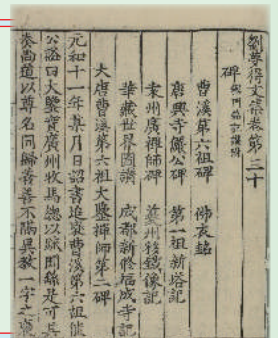 劉夢得文集卷第三十
碑
曹溪第六祖碑　佛衣銘
唐興寺儼公碑　第一祖新塔記
袁州廣禪師碑　夔州移鐵像記
華藏世界圖讚　成都新修福成寺記
大唐曹溪第六祖大鑒禪師第二碑
元和十一年某月日詔書追褒曹溪第六祖能
公謚曰大鑒寔廣州牧馬總以疏聞繇是可其
奏尚道以尊名同歸善善不隔異教一字之褒